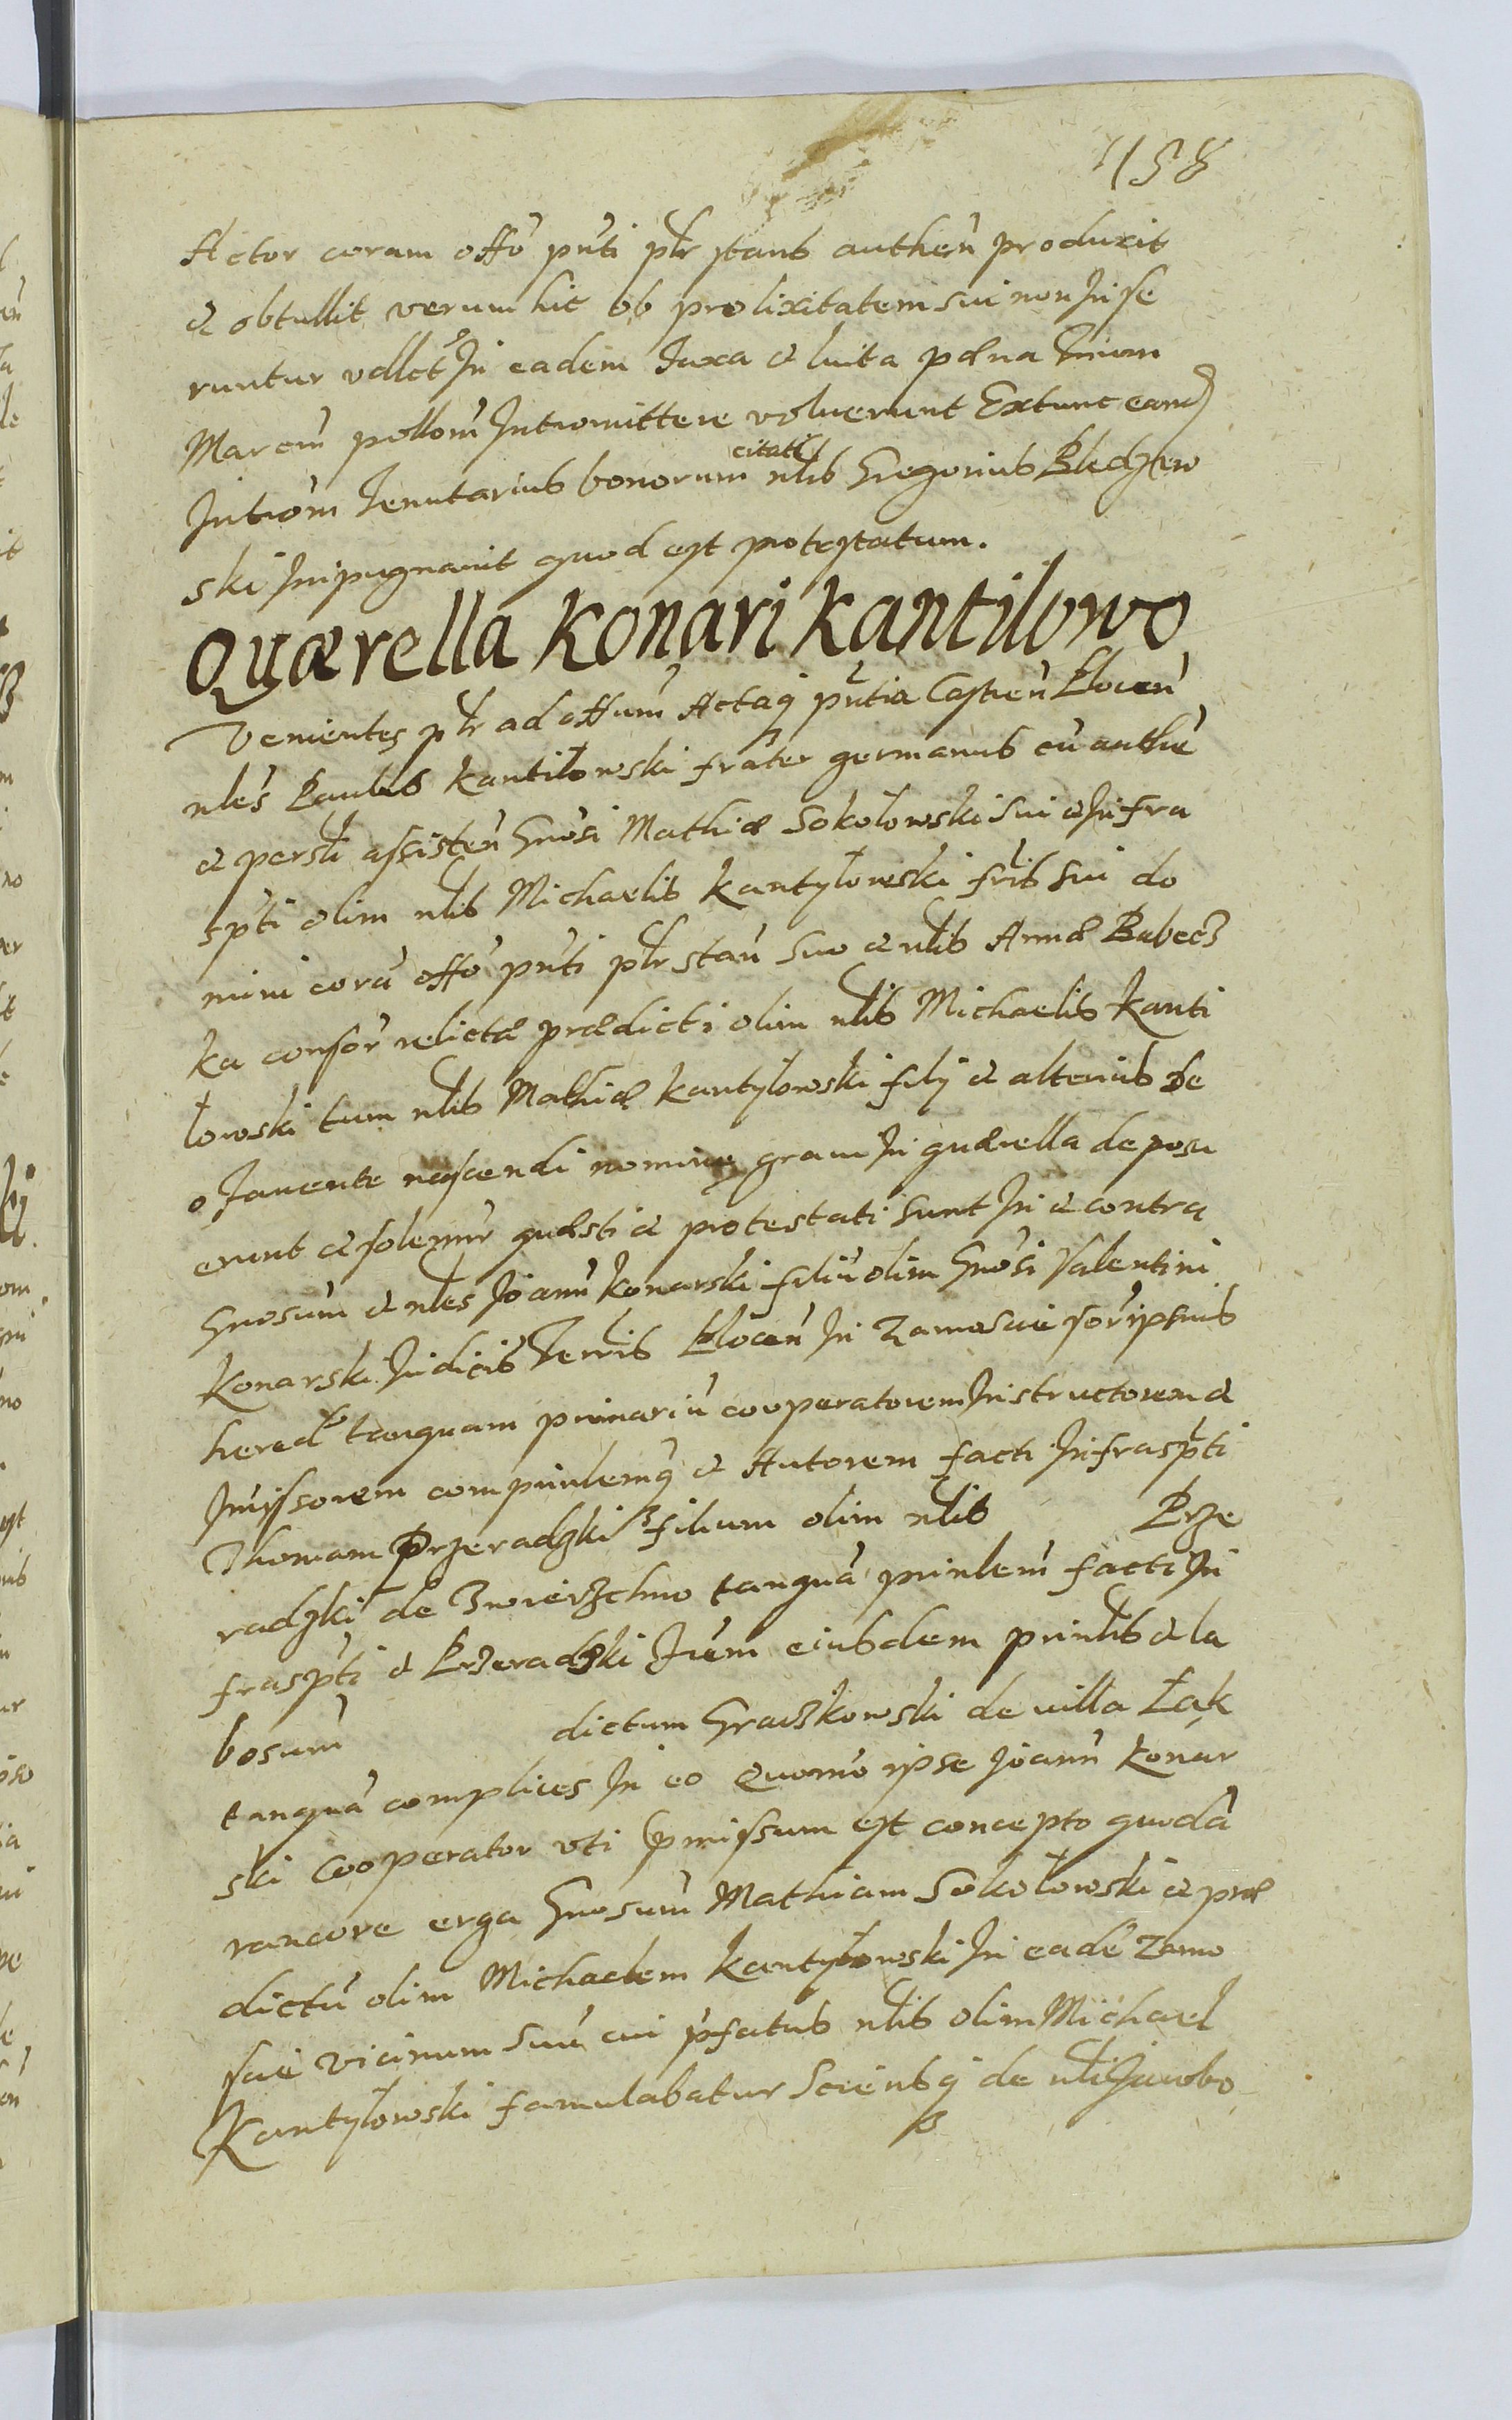 158
Actor coram offo pnti plr stans authen produxit
& obtullit verum hic ob prolixitatem sui non Inse
runtur vallet In eadem taxa & luita pæna trium
Marcm pollom Intromittere voluerunt Extunc eand
Introm Tenutarius bonorum citati nlis Gregorius Bledzew
ski Inpugnavit quod est protestatum.
Quærella Konari Kantilowo
Venientes plr ad offum Actaq pntia Castren Plocen
nles Paulus Kantiłowski frater germanus cu authe
& persli assisten Gnosi Mathiæ Sokołowski sui & Infra
spti olim nlis Michaelis Kantyłowski fris sui do
mini cora offo pnti plr stan suo & nlis Annæ Babecz
ka consor relictæ prædicti olim nlis Michaelis Kanti
łowski tum nlis Mathiæ Kantyłowski filij & alterius De
o favente nascendi nomine gravem In quærella deposu
erunt & solemnr quæsti & protestati sunt In & contra
Gnosum & nles Joann Konarski filiu olim Gnosi Valentini
Konarski Iudicis Terris Plocen In Zamoscie sor ipsius
hered tanquam primariu cooperatorem Instructorem &
Imissorem comprinlemq & Autorem facti Infraspti
Thomam Przeradzki filium olim nlis Prze
radzki de Zwierzchno tanqua prinlem facti In
fraspti & Przeradzki Frem eiusdem prinlis & la
bosum dictum Graczkowski de villa Łąk
tanqua complices In eo Quomo ipse Joann Konar
ski Cooperator vti pmissum est concepto quoda
rancore erga Gnosum Mathiam Sokołowski & præ
dictu olim Michaelem Kantyłowski In eade Zamo
scie vicinum suu cui pfatus nlis olim Michael
Kantyłowski famulabatur Sciensq de nli Jacobo